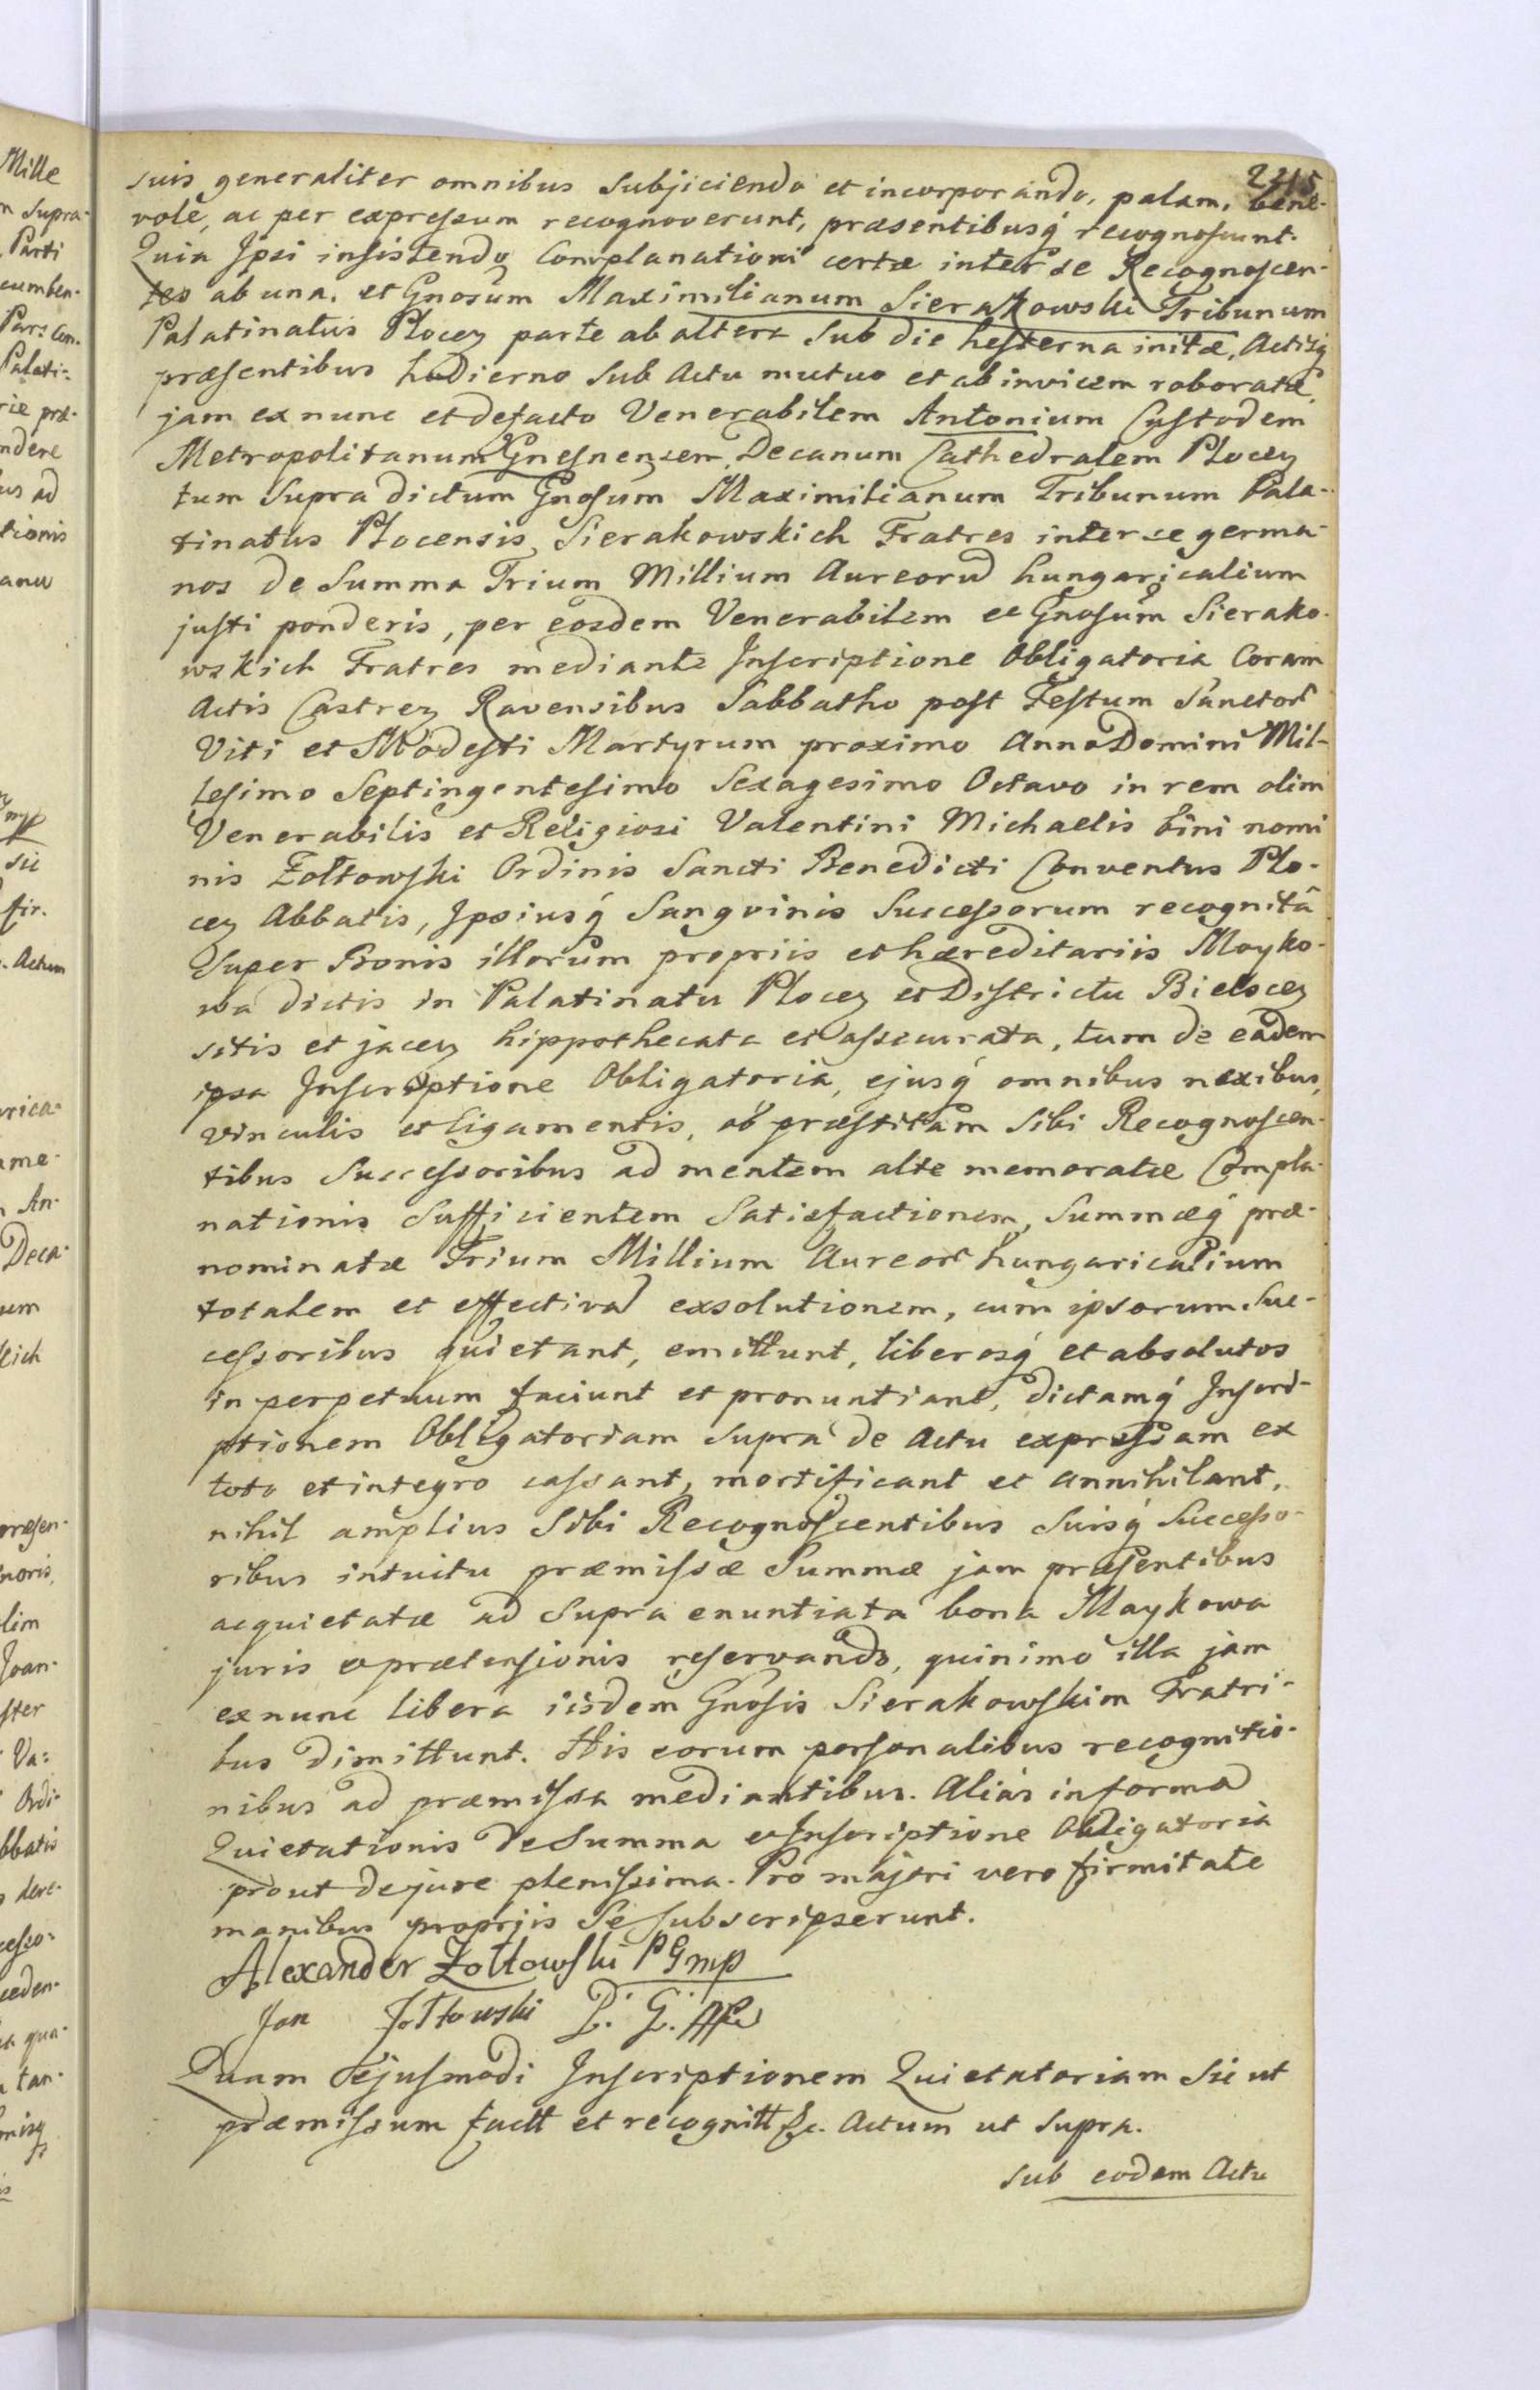 2215
suis generaliter omnibus subjiciendo et incorporando, palam, bene-
vole, ac per expressum recognoverunt, præsentibusq́ recognoscunt.
Quia Ipsi insistendo Complanationi certæ inter se Recognoscen-
tes ab una, et Gnosum Maximilianum Sierakowski Tribunum
Palatinatus Płocen parte ab altera sub die hesterna initæ, Actisq́
præsentibus hodierno sub Actu mutuo et ab invicem roboratæ,
jam ex nunc et defacto Venerabilem Antonium Custodem
Metropolitanum Gnesnensem, Decanum Cathedralem Płocen
tum supra dictum Gnosum Maximilianum Tribunum Pala-
tinatus Płocensis Sierakowskich Fratres inter se germa-
nos de Summa Trium Millium Aureorū hungaricalium
justi ponderis, per eosdem Venerabilem et Gnosum Sierako-
wskich Fratres mediante Inscriptione Obligatoria Coram
Actis Castren Ravensibus Sabbatho post Festum Sanctor
Viti et Modesti Martyrum proximo Anno Domini Mil-
lesimo Septingentesimo Sexagesimo Octavo in rem olim
Venerabilis et Religiosi Valentini Michaelis bini nomi
nis Żołtowski Ordinis Sancti Benedicti Conventus Pło-
cen Abbatis, Ipsiusq́ Sangvinis Successorum recognitâ
Super Bonis illorum propriis et hæreditariis Mayko-
wa dictis in Palatinatu Płocen et Districtu Bielscen
sitis et jacen hippothecata et assecurata, tum de eadem
ipsa Inscriptione Obligatoria, ejusq́ omnibus nexibus,
vinculis et ligamentis, ob præstitam sibi Recognoscen-
tibus Successoribus ad mentem alte memoratæ Compla-
nationis sufficientem Satisfactionem, Summæq́ præ-
nominatæ Trium Millium Aureor hungaricalium
totalem et effectivā exsolutionem, cum ipsorum Suc-
cessoribus quietant, emittunt, liberosq́ et absolutos
in perpetuum faciunt et pronuntiant, dictamq́ Inscri-
ptionem Obligatoriam supra de Actu expressam ex
toto et integro cassant, mortificant et annihilant,
nihil amplius sibi Recognoscentibus suisq́ Successo-
ribus intuitu præmissæ Summæ jam præsentibus
acquietatæ ad supra enuntiata bona Maykowa
juris et prætensionis reservando, quinimo illa jam
ex nunc libera iisdem Gnosis Sierakowskim Fratri-
bus dimittunt. His eorum personalibus recognitio-
nibus ad præmissa mediantibus. Aliàs in forma
Quietationis de Summa et Inscriptione Obligatoria
prout de jure plenissima. Pro majori vero firmitate
manibus proprijs se subscripserunt.
Alexander Żołtowski PG mp
Jan Żołtowski P. G.
Quam ejusmodi Inscriptionem Quietatoriam sic ut
præmissum factt et recognitt &c. Actum ut supra.
sub eodem Actu